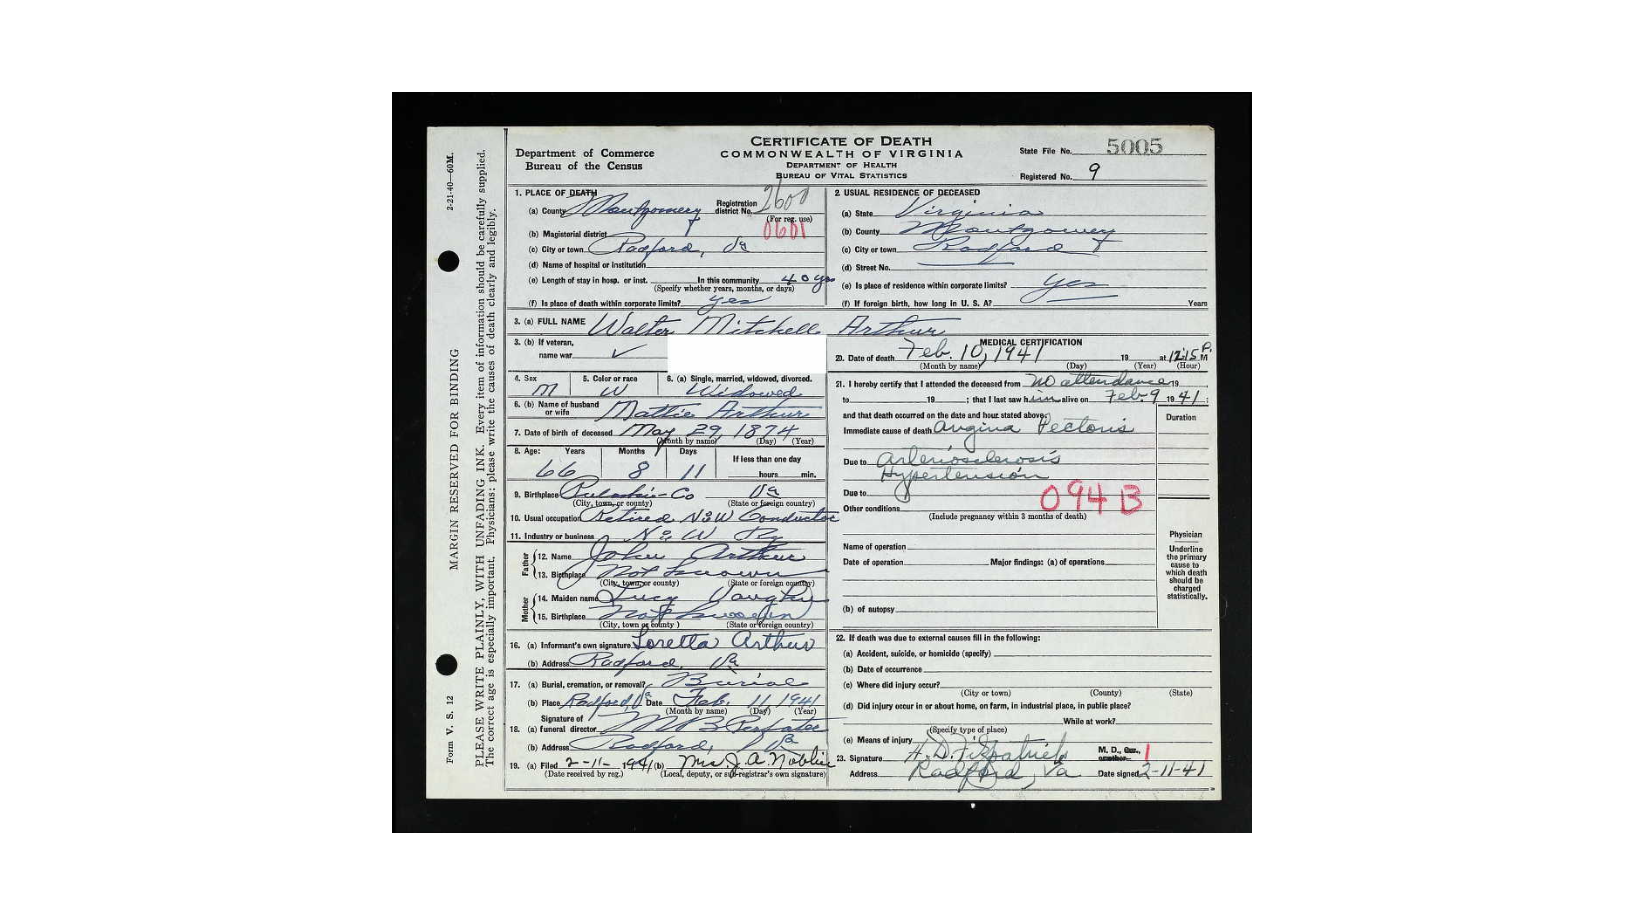 CERTIFICATE OF DEATH
COMMONWEALTH OF VIRGINIA
DEPARTMENT OF HEALTH
BUREAU OF VITAL STATISTICS
Department of Commerce
Bureau of the Census
State File No. 5005
Registered No. 9
2-21-40—60M.
MARGIN RESERVED FOR BINDING
Form V. S. 12
PLEASE WRITE PLAINLY, WITH UNFADING INK. Every item of information should be carefully supplied.
The correct age is especially important. Physicians: please write the causes of death clearly and legibly.
1. PLACE OF DEATH
(a) County Montgomery Registration district No. 2600
(For reg. use)
0601
(b) Magisterial district
(c) City or town Radford, Va
(d) Name of hospital or institution
(e) Length of stay in hosp. or inst. In this community 40 yrs
(Specify whether years, months, or days)
(f) Is place of death within corporate limits? yes
2. USUAL RESIDENCE OF DECEASED
(a) State Virginia
(b) County Montgomery
(c) City or town Radford
(d) Street No.
(e) Is place of residence within corporate limits? yes
(f) If foreign birth, how long in U. S. A.? Years
3. (a) FULL NAME Walter Mitchell Arthur
3. (b) If veteran,
name war
4. Sex M
5. Color or race W
6. (a) Single, married, widowed, divorced. Widowed
6. (b) Name of husband or wife Mattie Arthur
7. Date of birth of deceased May 29 1874
(Month by name) (Day) (Year)
8. Age: Years Months Days If less than one day
66 8 11 hours min.
9. Birthplace Pulaski Co Va
(City, town, or county) (State or foreign country)
10. Usual occupation Retired N&W Conductor
11. Industry or business N & W Ry
Father
12. Name John Arthur
13. Birthplace Not known
(City, town, or county) (State or foreign country)
Mother
14. Maiden name Lucy Vaughn
15. Birthplace Not known
(City, town or county) (State or foreign country)
16. (a) Informant's own signature Loretta Arthur
(b) Address Radford, Va
17. (a) Burial, cremation, or removal? Burial
(b) Place Radford, Va Date Feb. 11 1941
(Month by name) (Day) (Year)
Signature of
18. (a) funeral director M B
(b) Address Radford, Va
19. (a) Filed 2-11-1941 (b) Mrs J. A. Noblin
(Date received by reg.) (Local, deputy, or sub-registrar's own signature)
MEDICAL CERTIFICATION
20. Date of death Feb. 10, 1941 19 at 12:15 P. M
(Month by name) (Day) (Year) (Hour)
21. I hereby certify that I attended the deceased from no attendance 19
to 19 ; that I last saw him alive on Feb. 9 1941;
and that death occurred on the date and hour stated above.
Duration
Immediate cause of death Angina Pectoris
Due to Arteriosclerosis
Hypertension
Due to
094 B
Other conditions
(Include pregnancy within 3 months of death)
Physician
Underline the primary cause to which death should be charged statistically.
Name of operation
Date of operation Major findings: (a) of operations
(b) of autopsy
22. If death was due to external causes fill in the following:
(a) Accident, suicide, or homicide (specify)
(b) Date of occurrence
(c) Where did injury occur?
(City or town) (County) (State)
(d) Did injury occur in or about home, on farm, in industrial place, in public place?
While at work?
(Specify type of place)
(e) Means of injury
23. Signature H. D. Fitzpatrick M. D., 1
Address Radford, Va Date signed 2-11-41